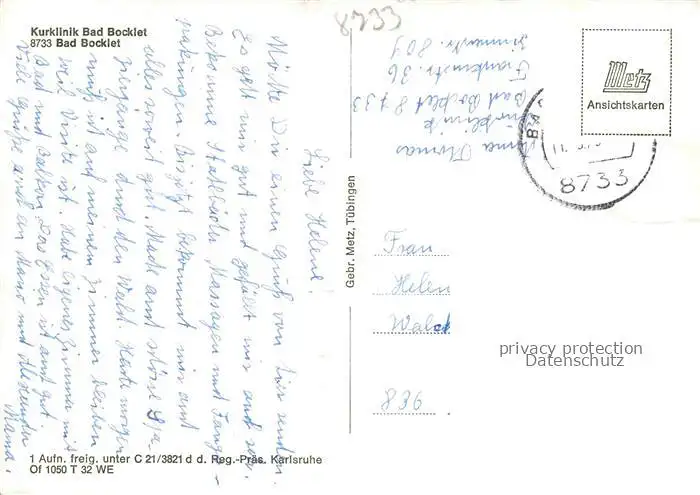 Kurklinik Bad Bocklet
8733 Bad Bocklet
8733
Liebe Helene!
Möchte Dir einen Gruß von hier senden.
Es geht mir gut und gefällt mir auch sehr.
Bekomme Stahlbäder, Massagen und Fango-
packungen. Bis jetzt bekommt mir auch
alles soweit gut. Mache auch schöne Spa-
ziergänge durch den Wald. Heute morgen
muß ich auf meinem Zimmer bleiben
weil Visite ist. Habe eigenes Zimmer mit
Bad und Balkon. Das Essen ist auch gut.
Viele Grüße auch an Mann und
Mama.
1 Aufn. freig. unter C 21/3821 d d. Reg.-Präs. Karlsruhe
Of 1050 T 32 WE
Gebr. Metz, Tübingen
Anna
Kurklinik
Bad Bocklet 8733
Frankenstr. 36
Zimmerstr. 809
Metz
Ansichtskarten
8733
Frau
Helen
Wald
836
privacy protection
Datenschutz